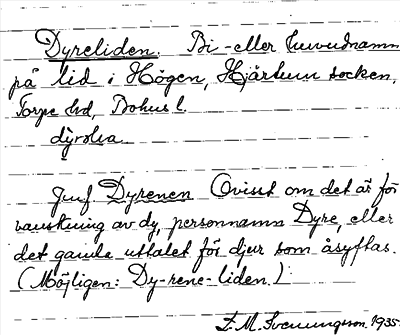 Dyreliden. Bi- eller huvudnamn
på lid i Högen, Hjärtum socken,
Torpe hd, Bohus l.
dýrolia
Jmf. Dyrenen (Ovisst om det är för-
vanskning av dy, personnamn Dyre, eller
det gamla uttalet för djur som åsyftas.
(Möjligen: Dy-rene-liden.)
F. M. Svenungson. 1935